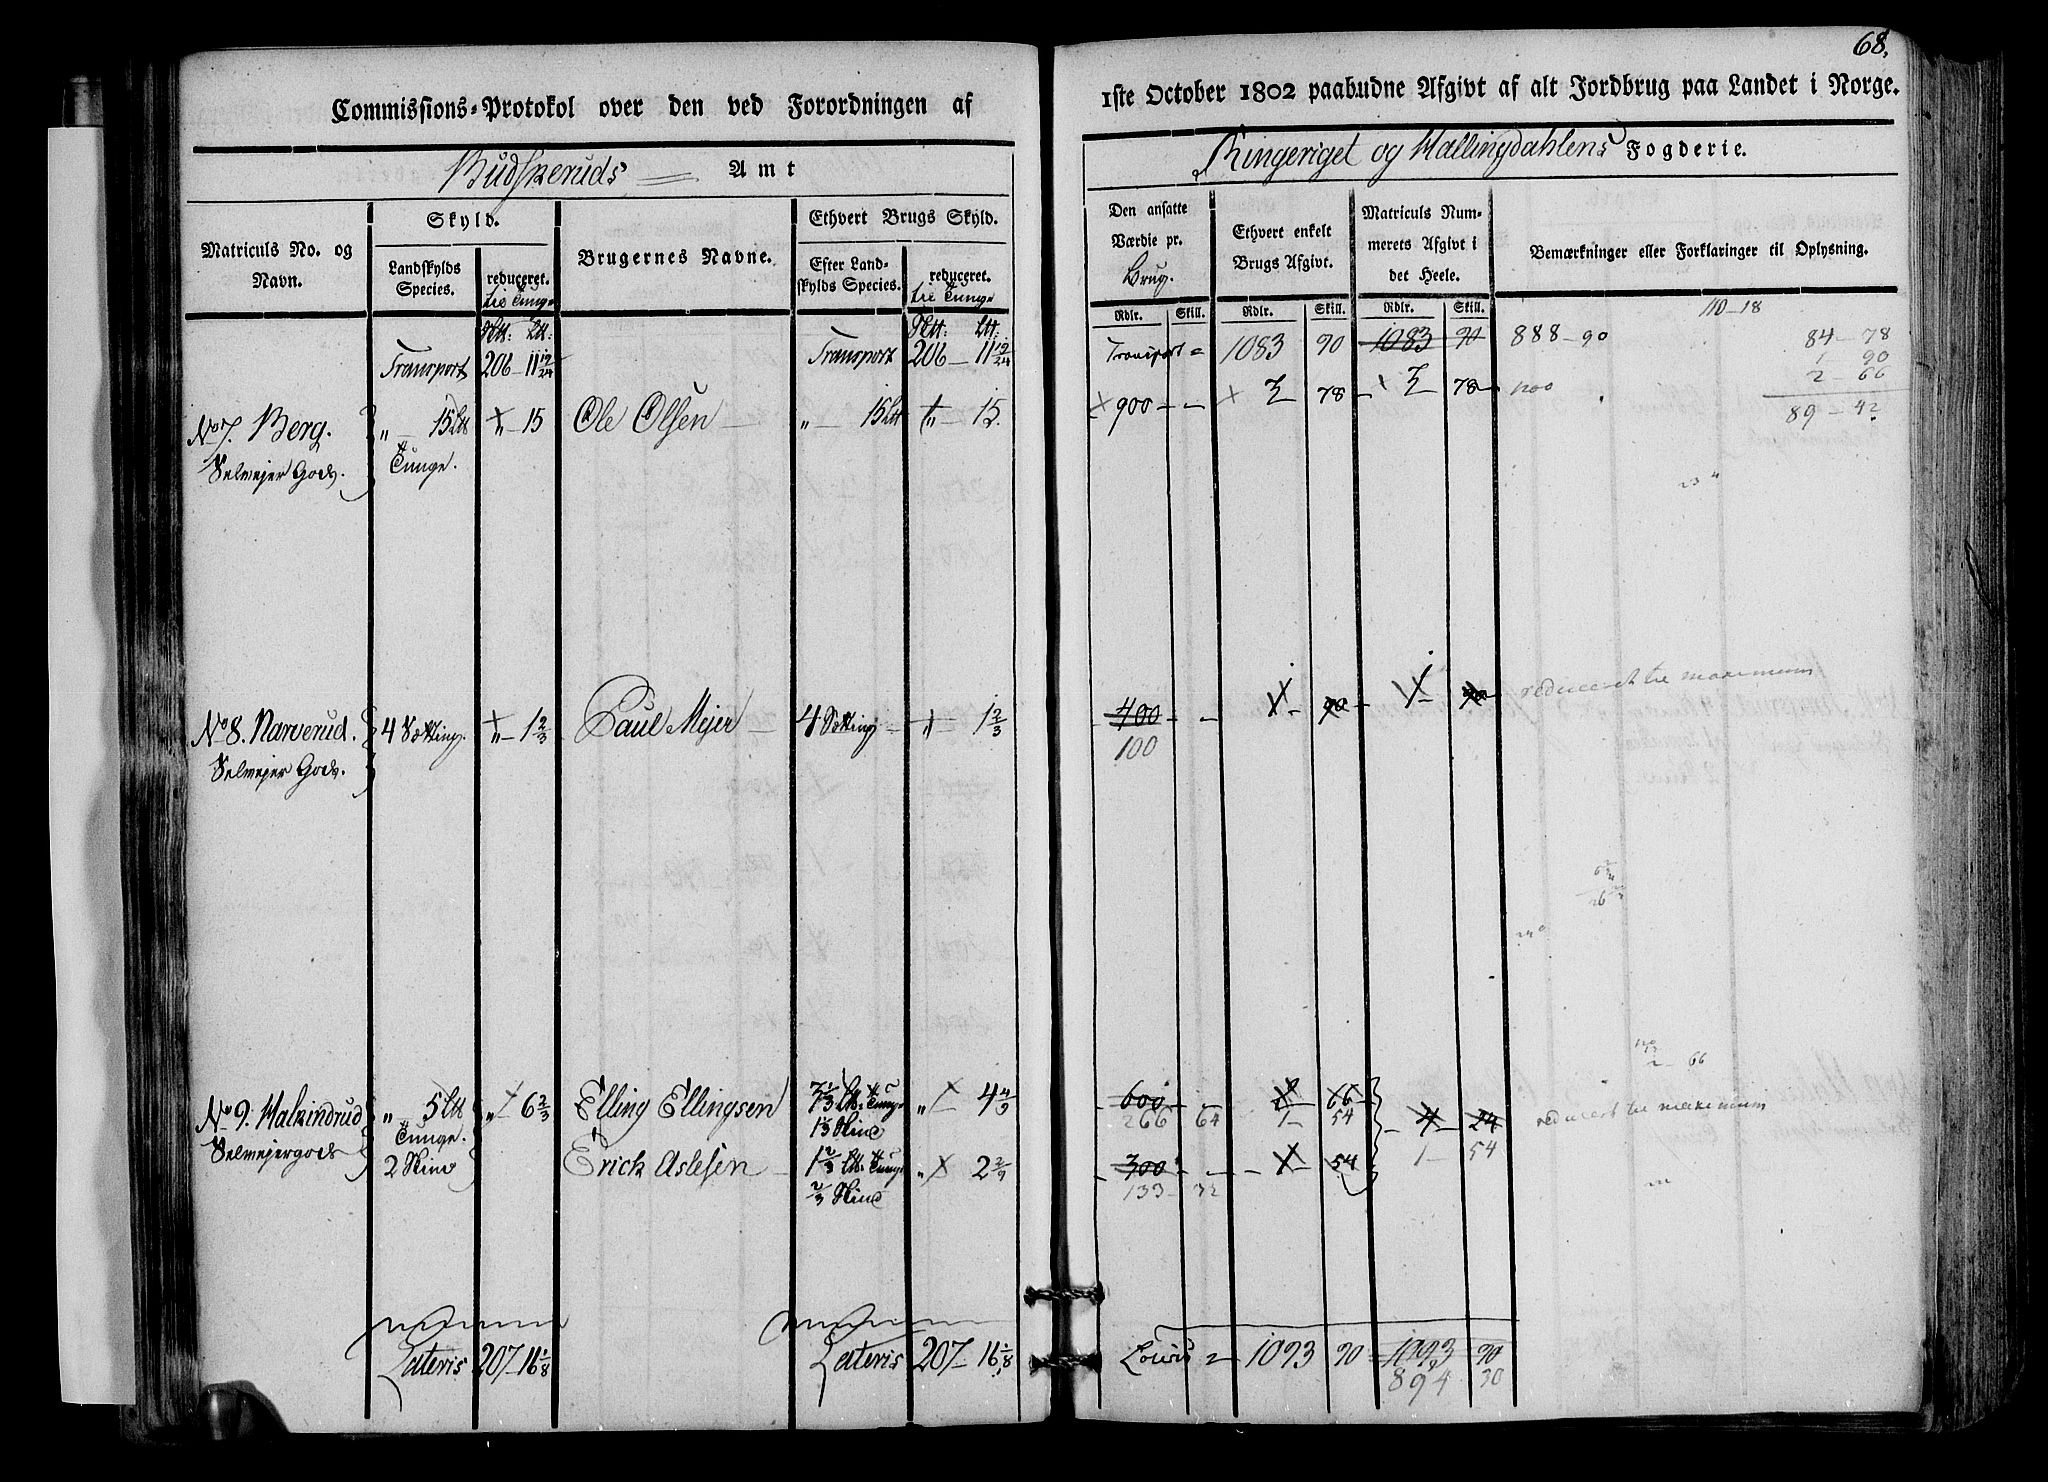 68.
Commissions-Protokol over den ved Forordningen af
1ste October 1802 paabudne Afgivt af alt Jordbrug paa Landet i Norge.
Budskeruds Amt
Ringeriget og Hallingdahlens Fogderie.
Matriculs No. og Navn.
Skyld.
Landskylds Species.
reduceret.
til Tunge
Brugernes Navne.
Ethvert Brugs Skyld.
Efter Landskylds Species.
reduceret.
til Tunge
Den ansatte Værdie pr. Brug.
Ethvert enkelt Brugs Afgivt.
Matriculs Nummerets Afgivt i det Heele.
Bemærkninger eller Forklaringer til Oplysning.
Rdlr. Skill. Rdlr. Skill. Rdlr. Skill.
110-18
Transport 206-11 19/24 Transport 206-11 19/24 Transport = 1083 90 1083 90 888-90 84-78
1 90
2-66
89-42
No 7. Berg. „ 15 Ltt „-15 Ole Olsen „-15 Ltt „-15. 900 - - 3 78 3 78
Selmejer Gods. Tunge.
reduceret til maximum
No 8. Narverud. 4 Sætting. „-1 2/3 Paul Mejer 4 Sætting „-1 2/3 400 - - 1 90 1 90
Selmejer Gods. 100
2-66
No 9. Halkindrud „ 5 Ltt „ 6 2/3 Elling Ellingsen 7 1/3 Ltt Tunge „ 4 4/9 600 - - 2 66 4 24 reducert til maximum
Selmejergods Tunge. 1 1/3 Skind 266 64 1 54 1 54
2 Skind Erick Aslesen 1 2/3 Ltt Tunge „ 2 2/9 300 - - 1 54
2/3 Skind 133-32
Lateris 207-16 1/8 Lateris 207-16 1/8 1093 90 1093 90
894 30